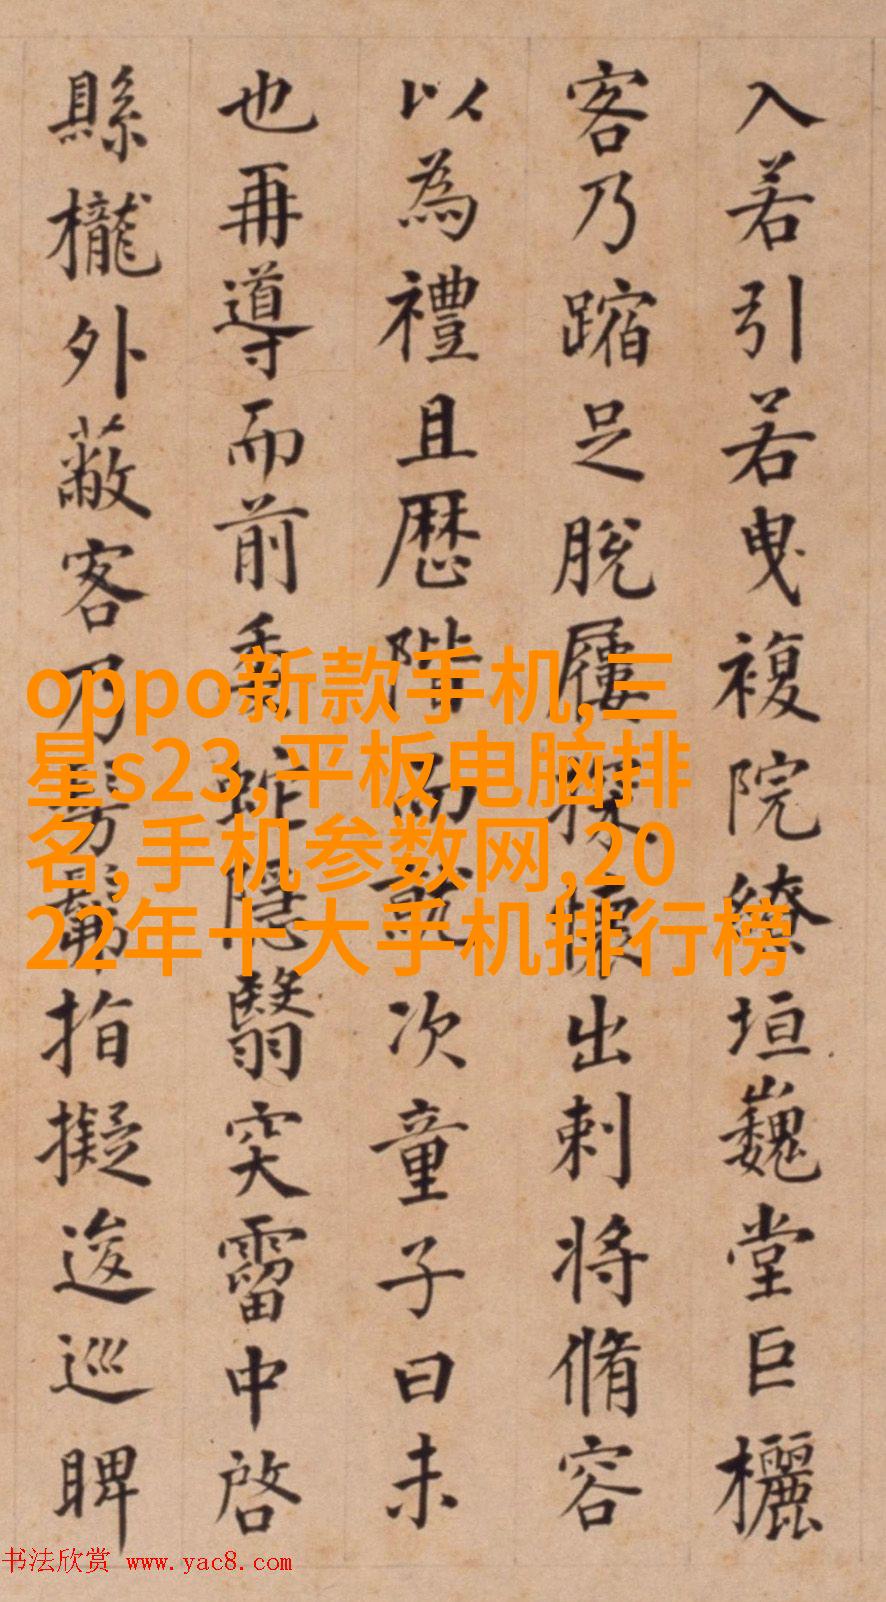 入若引若曳複院繚垣巍堂巨欐
客乃蹜足脫屨探懷出刺將脩容
以為禮且歷階而就次童子曰未
也再導而前委蛇隱翳窔霤中啓
縣櫳外蔽客乃髣髴指擬逡巡睥
oppo新款手机,三
星s23,平板电脑排
名,手机参数网,20
22年十大手机排行榜
书法欣赏 www.yac8.com